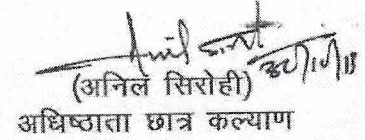 (अनिल सिरोही)
अधिष्ठाता छात्र कल्याण